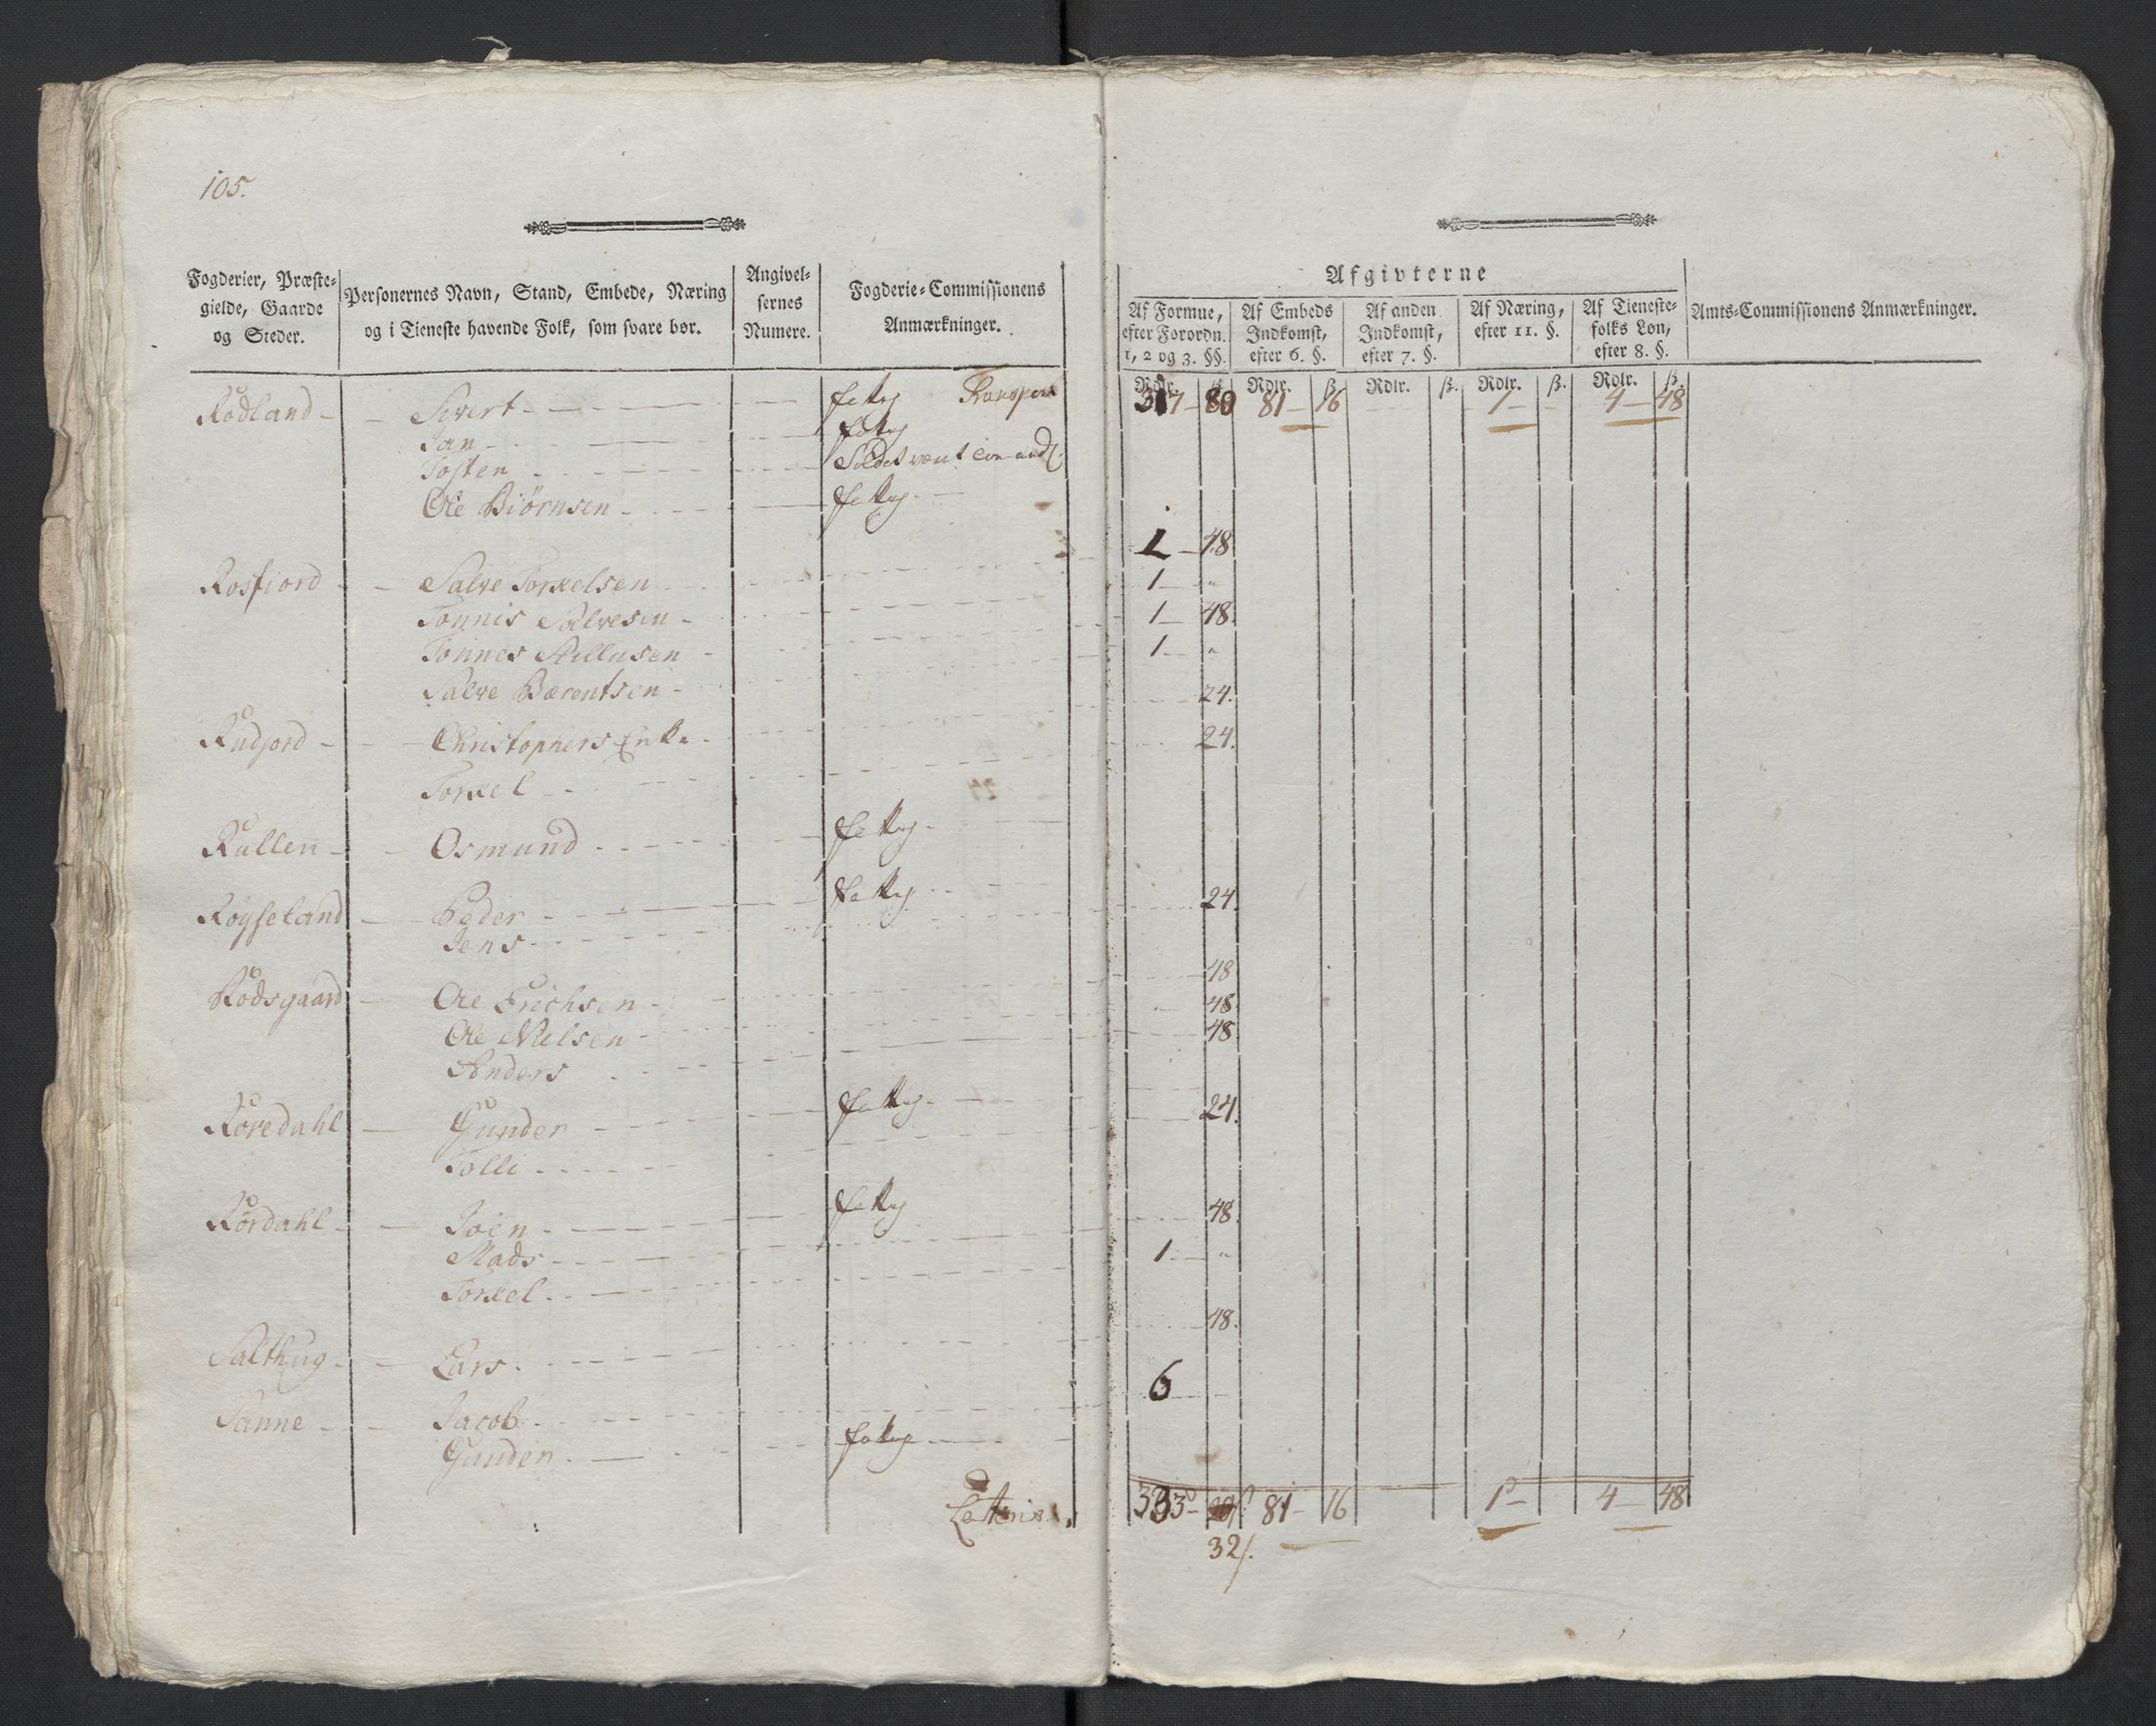 105.
Fogderier, Præste-
gielde, Gaarde
og Steder.
Personernes Navn, Stand, Embede, Næring
og i Tieneste havende Folk, som svare bør.
Angivel-
sernes
Numere.
Fogderie-Commissionens
Anmærkninger.
Afgivterne
Af Formue,
efter Forordn.
1, 2 og 3. §§.
Af Embeds
Indkomst,
efter 6. §.
Af anden
Indkomst,
efter 7. §.
Af Næring,
efter 11. §.
Af Tieneste-
folks Løn,
efter 8. §.
Amts-Commissionens Anmærkninger.
Rdlr. ß. Rdlr. ß. Rdlr. ß. Rdlr. ß. Rdlr. ß.
Rødland - - Sivert - - fattig Transport 317 - 80 81 - 16 1 - 4 - 48
Jan - - fattig
Tosten - -
Ole Biørnsen - - fattig
Rosfiord - - Salve Torkelsen - - 1 - 48
Tønnis Salvesen - - 1 - "
Tønnes Aillusen - - 1 - 48
Salve Bærentsen - - 1 - "
Rudjord - - Christophers Enke - - 24.
Torkel - - 24.
Rullen - - Osmund - - fattig
Røyseland - Peder - - fattig
Jens - - 24.
Rødsgaard - Ole Erichsen - - 48
Ole Nielsen - - 48
Anders - - 48
Røredahl - Gunder - - fattig
Tolli - - 24.
Rørdahl - - Joen - - fattig
Mads - - 48.
Torkel - - 1 - "
Salthug - - Lars - - 48.
Sanne - - Jacob - - 6 -
Gunder - - fattig
Lateris 333 - 81 - 16 1 - 4 - 48
32/.